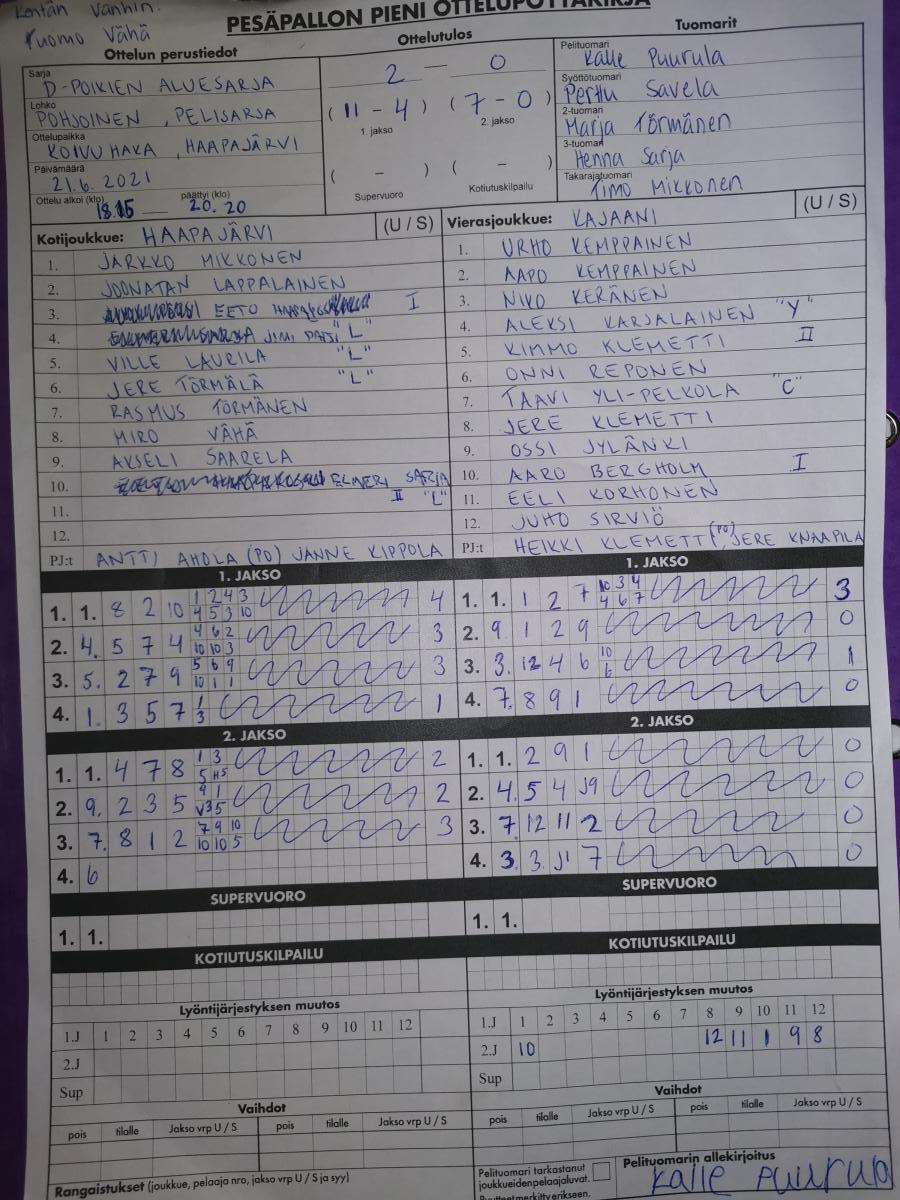 Kentän Vanhin:
Tuomo Vähä
PESÄPALLON PIENI OTTELUPÖYTÄKIRJA
Ottelun perustiedot
Sarja
D-POIKIEN ALUESARJA
Lohko
POHJOINEN, PELISARJA
Ottelupaikka
KOIVUHAKA, HAAPAJÄRVI
Päivämäärä
21.6.2021
Ottelu alkoi (klo) päättyi (klo)
18.15 — 20.20
Ottelutulos
2 — 0
(11 - 4) (7 - 0)
1. jakso 2. jakso
( - ) ( - )
Supervuoro Kotiutuskilpailu
Tuomarit
Pelituomari
Kalle Puurula
Syöttötuomari
Perttu Savela
2-tuomari
Marja Törmänen
3-tuomari
Henna Sarja
Takarajatuomari
Timo Mikkonen
Kotijoukkue: HAAPAJÄRVI (U / S)
1. JARKKO MIKKONEN
2. JOONATAN LAPPALAINEN
3. EETO I
4. JIMI "L"
5. VILLE LAURILA "L"
6. JERE TÖRMÄLÄ "L"
7. RASMUS TÖRMÄNEN
8. MIRO VÄHÄ
9. AKSELI SAARELA
10. ELMERI SARJA
11. II "L"
12.
PJ:t ANTTI AHOLA (PO) JANNE KIPPOLA
Vierasjoukkue: KAJAANI (U / S)
1. URHO KEMPPAINEN
2. AAPO KEMPPAINEN
3. NIKO KERÄNEN
4. ALEKSI KARJALAINEN "Y"
5. KIMMO KLEMETTI II
6. ONNI REPONEN
7. TAAVI YLI-PELKOLA "C"
8. JERE KLEMETTI
9. OSSI JYLÄNKI
10. AARO BERGHOLM I
11. EELI KORHONEN
12. JUHO SIRVIÖ
PJ:t HEIKKI KLEMETTI (PO), JERE KNAAPILA
1. JAKSO
1. 1. 8 2 10 1 2 4 3 4
4 5 3 10
2. 4. 5 7 4 4 6 2 3
10 10 3
3. 5. 2 7 9 5 6 9 3
10 1 1
4. 1. 3 5 7 1 1
3
1. JAKSO
1. 1. 1 2 7 10 3 4 3
4 6 7
2. 9 1 2 9 0
3. 3. 12 4 6 10 1
6
4. 7. 8 9 1 0
2. JAKSO
1. 1. 4 7 8 1 3 2
5 H5
2. 9. 2 3 5 9 1 2
V3 5
3. 7. 8 1 2 7 9 10 3
10 10 5
4. 6
2. JAKSO
1. 1. 2 9 1 0
2. 4. 5 4 J9 0
3. 7. 12 11 2 0
4. 3. 3 J1 7 0
SUPERVUORO
1. 1.
SUPERVUORO
1. 1.
KOTIUTUSKILPAILU
KOTIUTUSKILPAILU
Lyöntijärjestyksen muutos
1.J 1 2 3 4 5 6 7 8 9 10 11 12
2.J
Sup
Lyöntijärjestyksen muutos
1.J 1 2 3 4 5 6 7 8 9 10 11 12
2.J 10 12 11 1 9 8
Sup
Vaihdot
pois tilalle Jakso vrp U / S pois tilalle Jakso vrp U / S
Vaihdot
pois tilalle Jakso vrp U / S pois tilalle Jakso vrp U / S
Rangaistukset (joukkue, pelaaja nro, jakso vrp U / S ja syy)
Pelituomari tarkastanut
joukkueidenpelaajaluvat.
Puutteetmerkittyerikseen.
Pelituomarin allekirjoitus
Kalle Puurula